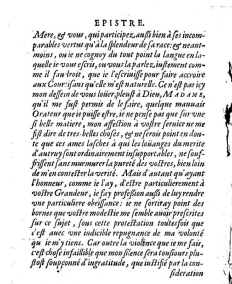 EPISTRE.
Mere, & vous, qui participez, aussi bien à ses incom-
parables vertus qu'à la splendeur de sa race: & neant-
moins, ou ie ne cognoy du tout point la langue en la-
quelle ie vous escris, ou vous la parlez, iustement com-
me il faudroit, que ie l'escriuisse pour faire accroire
aux Courtisans qu'elle m'est naturelle. Ce n'est pas icy
mon dessein de vous loüer, pleust à Dieu, MADAME,
qu'il me fust permis de le faire, quelque mauuais
Orateur que ie puisse estre, ie ne pense pas que sur vne
si belle matiere, mon affection à vostre seruice ne me
fist dire de tres-belles choses, & ne seroit point en dou-
te que ces ames lasches à qui les loüanges du merite
d'autruy sont ordinairement insupportables, ne souf-
frissent sans murmure la pureté des vostres, bien loin
de m'en contester la verité. Mais d'autant qu'ayant
l'honneur, comme ie l'ay, d'estre particulierement à
vostre Grandeur, ie fay profession aussi de luy rendre
vne particuliere obeïssance: ie ne sortiray point des
bornes que vostre modestie me semble auoir prescrites
sur ce sujet, sous cette protestation toutesfois que
c'est auec vne indicible repugnance de ma volonté
qui ie m'y tiens. Car outre la violence que ie me fais,
c'est chose infaillible que mon silence sera tousiours plu-
stost soupçonné d'ingratitude, que iustifié par la con-
sideration